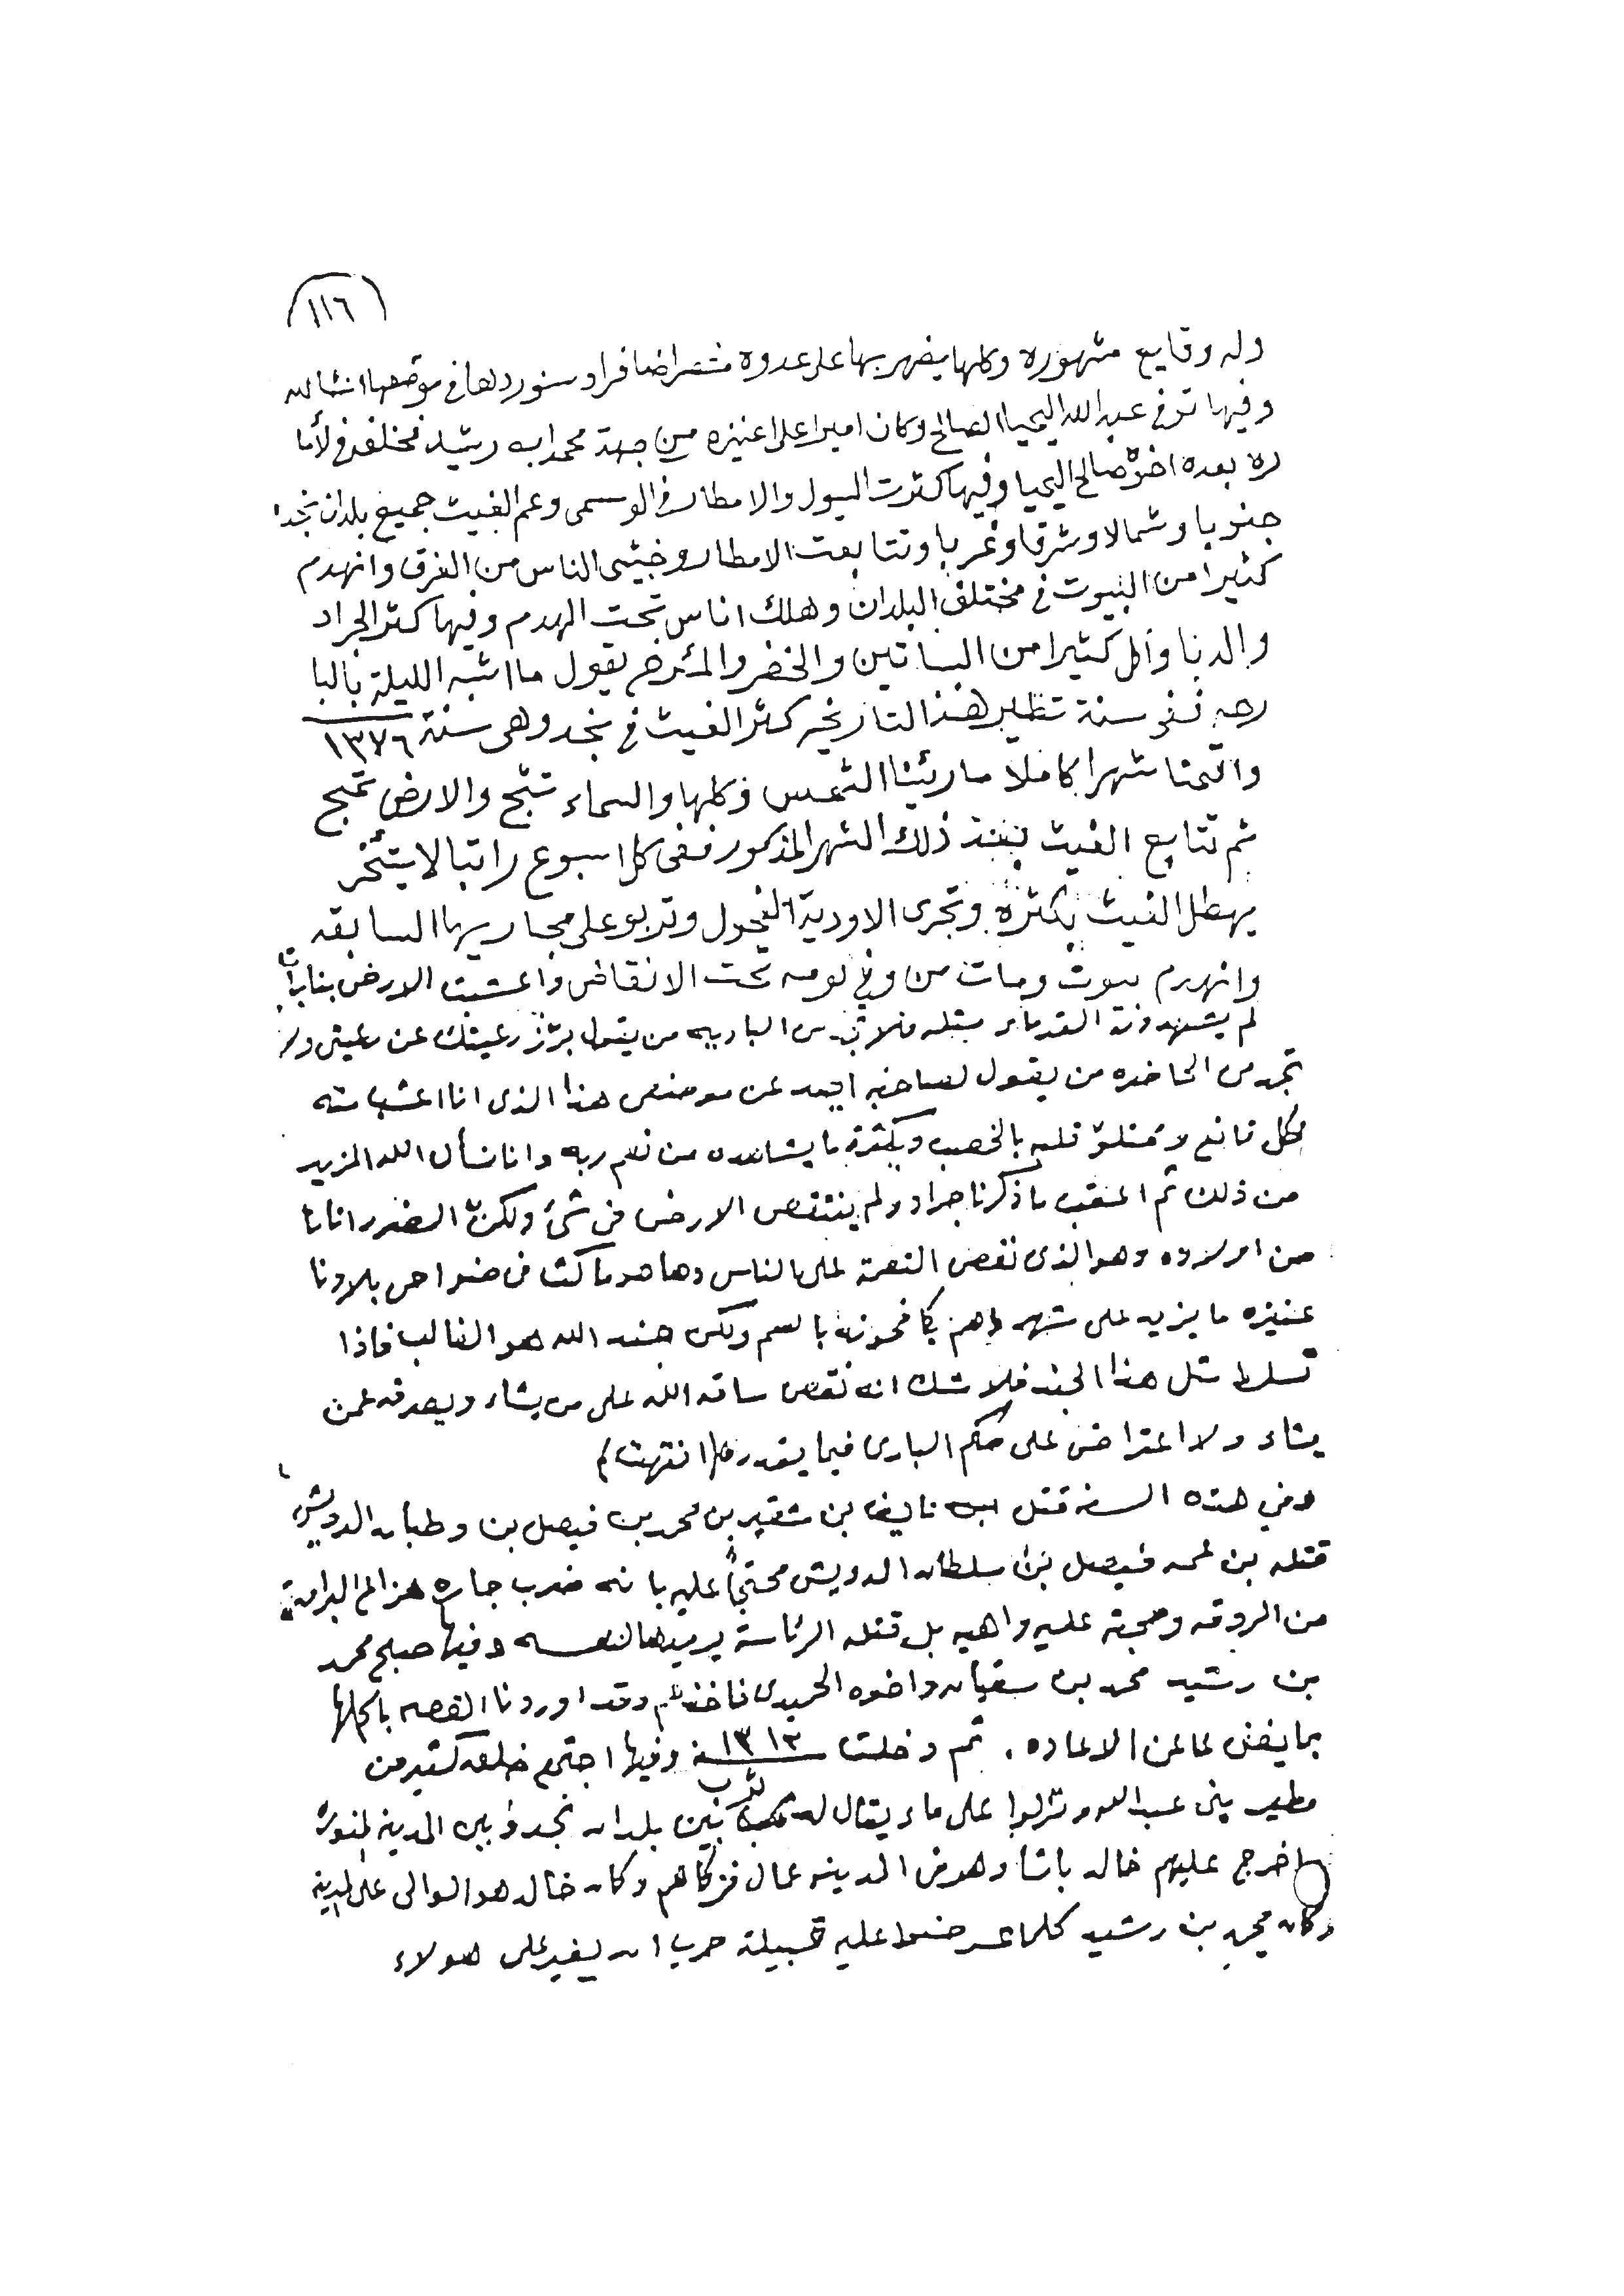 ١١٦
وله وقايع مشهوره وكلها يضهر بها على عدوه منتصرا ضافرا وسنوردها في موقعها انشالله
وفيها توفي عبدالله اليحيا الصالح وكان اميرا على اعنيزه من جهة محمد ابن رشيد فخلفه في لأما
ره بعده اخوه صالح اليحيا وفيها كثرت السيول والامطار في الوسمى وعم الغيث جميع بلدان نجد
جنوبا وشمالا وشرقا وغربا وتتابعت الامطار وخشى الناس من الغرق وانهدم
كثيرا من البيوت في مختلف البلدان وهلك اناس تحت الهدم وفيها كثر الجراد
والدبا وأكل كثيرا من البساتين والخضر والمؤرخ يقول ما اشبه الليلة بالبا
رحه ففى سنة تنظير هذا التاريخ كثر الغيث في نجد وهى سنة ١٣٧٦
واقمنا شهرا كاملا ما رئينا الشمس وكلها والسماء تثج والارض تمج
ثم تتابع الغيث بعد ذلك الشهر المذكور ففى كل اسبوع راتبا لا يتئخر
يهطل الغيث بكثره وتجرى الاودية الفحول وتربو على مجاريها السابقه
وانهدم بيوت ومات من وفي يومه تحت الانقاض واعشبت الارض بنباتا
لم يشهدونه القدماء مثله فلا تجد من الباديه من يقول برز رعيتك عن رعيتى ولا
تجد من الحاضره من يقول لصاحبه ابعد عن موضعى هذا الذى انا اعشب منه
فكل قانع لامتلؤ قلبه بالخصب وبكثرة ما يشاهده من نعم ربه وانا نسأل الله المزيد
من ذلك ثم اعقب ما ذكرنا جراد ولم ينتقص الارض في شئ ولكن الضرر اتانا
من اولاده وهو الذى نغص النعمة على الناس وها هو ماكث في ضواحى بلادنا
عنيزه ما يزيد على شهر وهم يكافحونه بالسم ولكن جند الله هو الغالب فاذا
تسلط مثل هذا الجند فلا شك انه نقص ساقه الله على من يشاء ويصرفه عمن
يشاء ولا اعتراض على حكم البارى فيما يقدره (انتهت)
وفي هذه السنه قتل نايف بن شقير بن محمد بن فيصل بن وطبان الدويش
قتله بن عمه فيصل بن سلطان الدويش محتجاً عليه بانه ضرب جاره هزاع البراق
من الروقه وحجته عليه واهيه بل قتله الرئاسة يريدها لنفسه وفيها صبح محمد
بن رشيد محمد بن سقيان واخوه الحميدى فاخذهم وقد اوردنا القصه باكملها
بما يغنى عن الاعاده . ثم دخلت سنة ١٣١٢ وفيها اجتمع خلق كثير من
مطير بنى عبدالله ونزلوا على ماء يقال له ثرب بين بلدان نجد وبين المدينه المنوره
اخرج عليهم خالد باشا وهو في المدينه عمال فزكاهم وكان خالد هو الوالى على المدينه
وكان محمد بن رشيد كلما عرضوا عليه قبيلة حرب ان يغير على هولاء